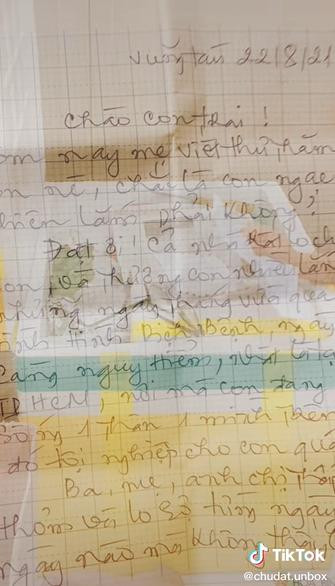 Vũng tàu 22/8/21
chào con trai !
nay mẹ viết thư thăm
con nè, chắc là con ngạc
nhiên lắm phải không !
Đạt ơi ! cả nhà
con, và thương con nhiều lắm
những ngày tháng vừa qua
tình hình Dịch Bệnh ngày
càng nguy hiểm, nhất là tại
TP HCM, nơi mà con đang
Sống 1 thân 1 mình
đó tội nghiệp cho con quá
Ba, mẹ, anh chị
và lo sợ từng ngày
ngày nào mà không
TikTok
@chudat.unbox